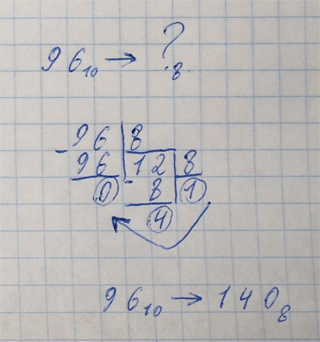 96₁₀ → ?₈
- 96 | 8
96 | 12 | 8
0 - 8 | 1
4
96₁₀ → 140₈